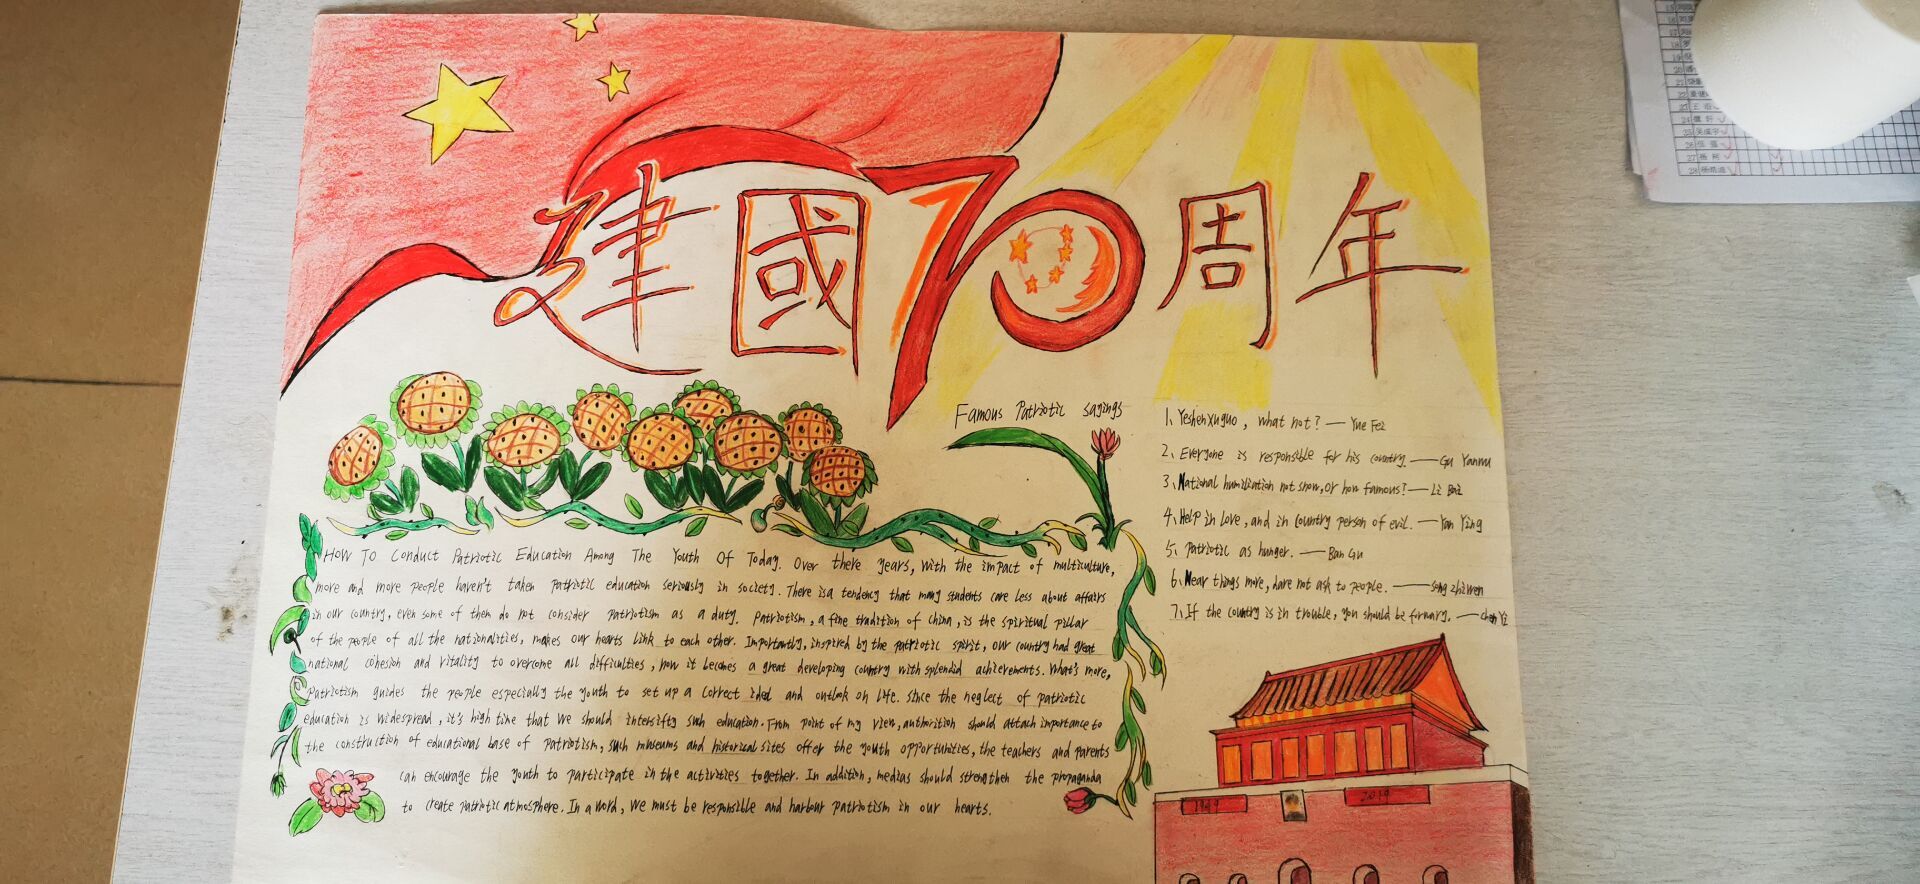 建國70周年
Famous Patriotic sayings
1、Yeshenxuguo, what not? — Yue Fei
2、Everyone is responsible for his country. — Gu Yanwu
3、National humiliation not snow, or how famous? — Li Bai
4、Help in love, and in country person of evil. — Yan Ying
5、Patriotic as hunger. — Ban Gu
6、Near things more, dare not ask to people. — Song zhiwen
7、If the country is in trouble, you should be forwary. — chen Yi
How To Conduct Patriotic Education Among The Youth Of Today. Over there years, with the impact of multiculture,
more and more people haven't taken patriotic education seriously in society. There is a tendency that many students care less about affairs
in our country, even some of them do not consider patriotism as a duty. Patriotism, a fine tradition of china, is the spiritual pillar
of the people of all the nationalities, makes our hearts link to each other. Importantly, inspired by the patriotic spirit, our country had great
national cohesion and vitality to overcome all difficulties, now it becomes a great developing country with splendid achievements. What's more,
patriotism guides the people especially the youth to set up a correct ideal and outlook on life. since the neglect of patriotic
education is widespread, it's high time that we should intersifty such education. From point of my view, authorition should attach importance to
the construction of educational base of patriotism, such museums and historical sites offer the youth opportunities, the teachers and parents
can encourage the youth to participate in the activities together. In addition, medias should strengthen the propaganda
to create patriotic atmosphere. In a word, we must be responsible and harbour patriotism in our hearts.
1949
2019